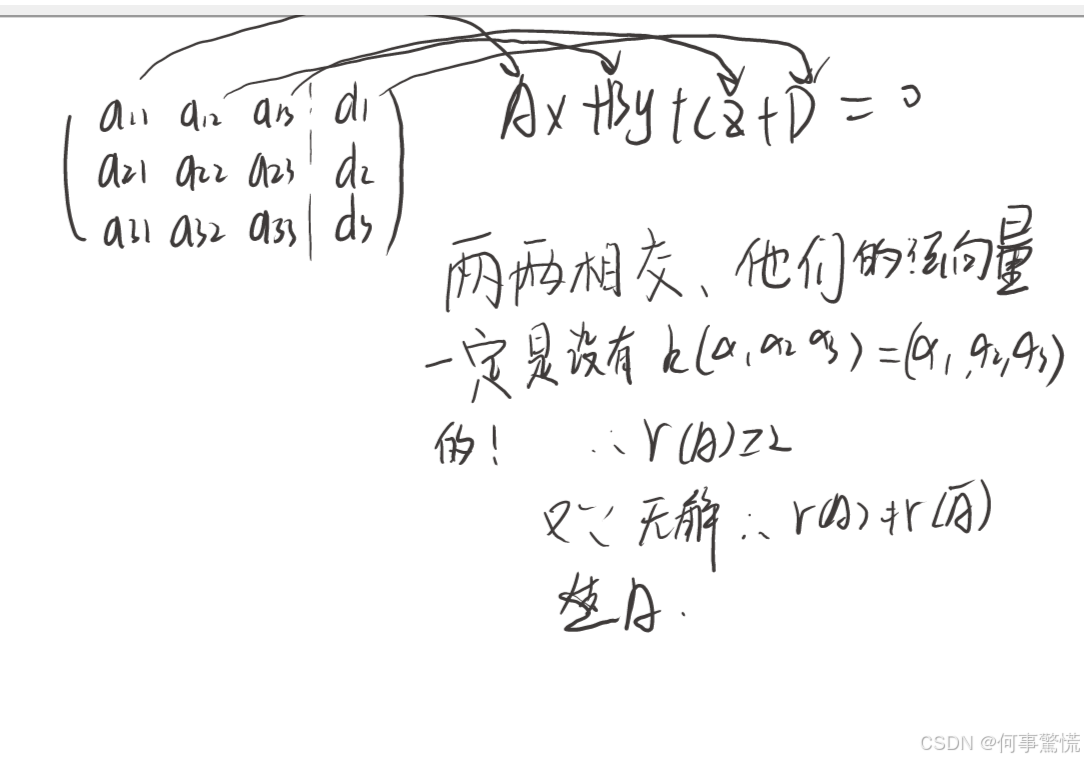 a11 a12 a13 d1
a21 a22 a23 d2
a31 a32 a33 d3
Ax+By+Cz+D=0
两两相交、他们的法向量
一定是没有k(a1 a2 a3)=(a1,a2,a3)
的! ∴r(A)=2
又∵无解∴r(A)≠r(Ā)
选A.
CSDN @何事驚慌